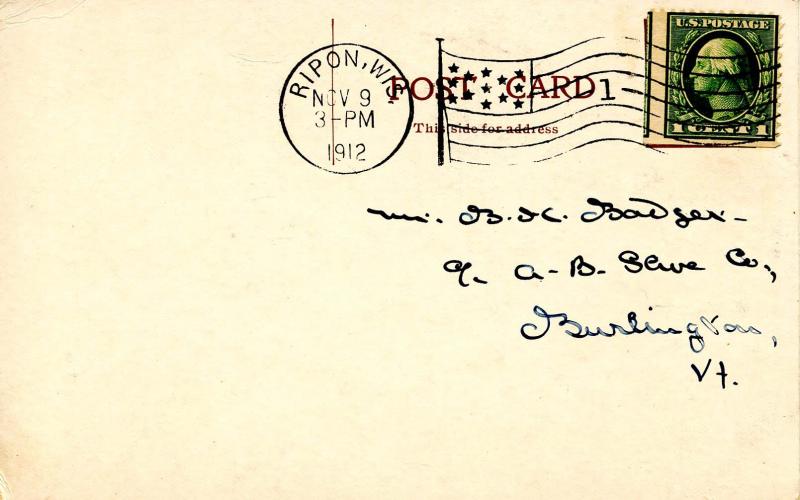 RIPON, WIS.
NOV 9
3-PM
1912
POST CARD
1
This side for address
U.S. POSTAGE
1 CENT 1
Mr. B. H. Badger-
A-B- Co.,
Burlington,
Vt.